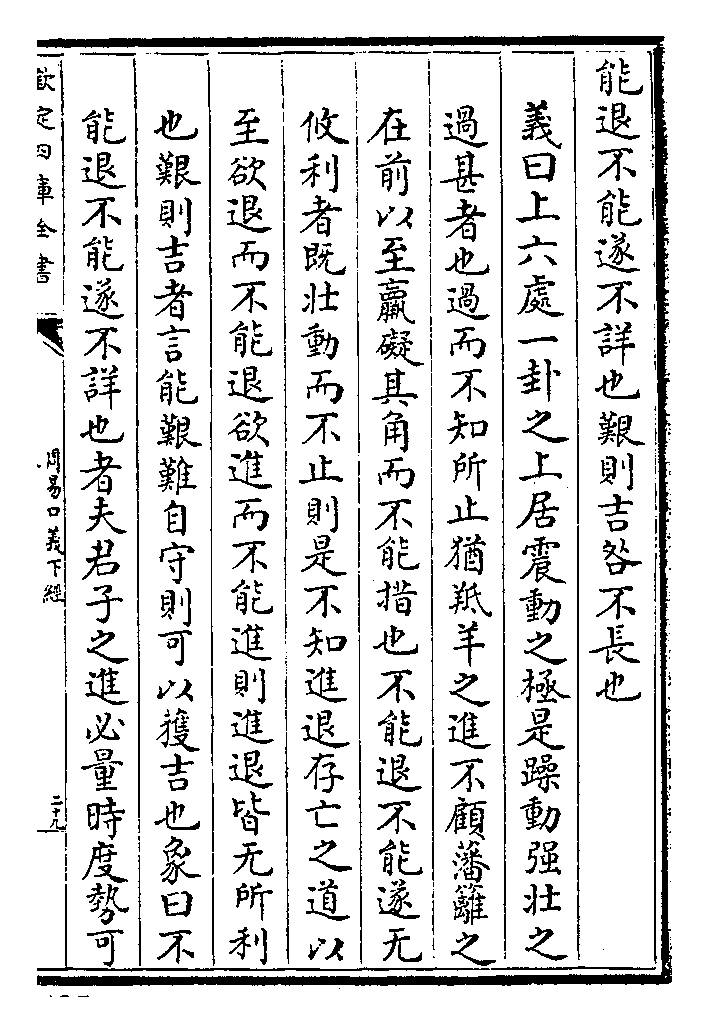 能退不能遂不詳也艱則吉咎不長也
義曰上六處一卦之上居震動之極是躁動强壯之
過甚者也過而不知所止猶羝羊之進不顧藩籬之
在前以至羸礙其角而不能措也不能退不能遂无
攸利者既壯動而不止則是不知進退存亡之道以
至欲退而不能退欲進而不能進則進退皆无所利
也艱則吉者言能艱難自守則可以獲吉也象曰不
能退不能遂不詳也者夫君子之進必量時度勢可
欽定四庫全書
周易口義下經
二十九